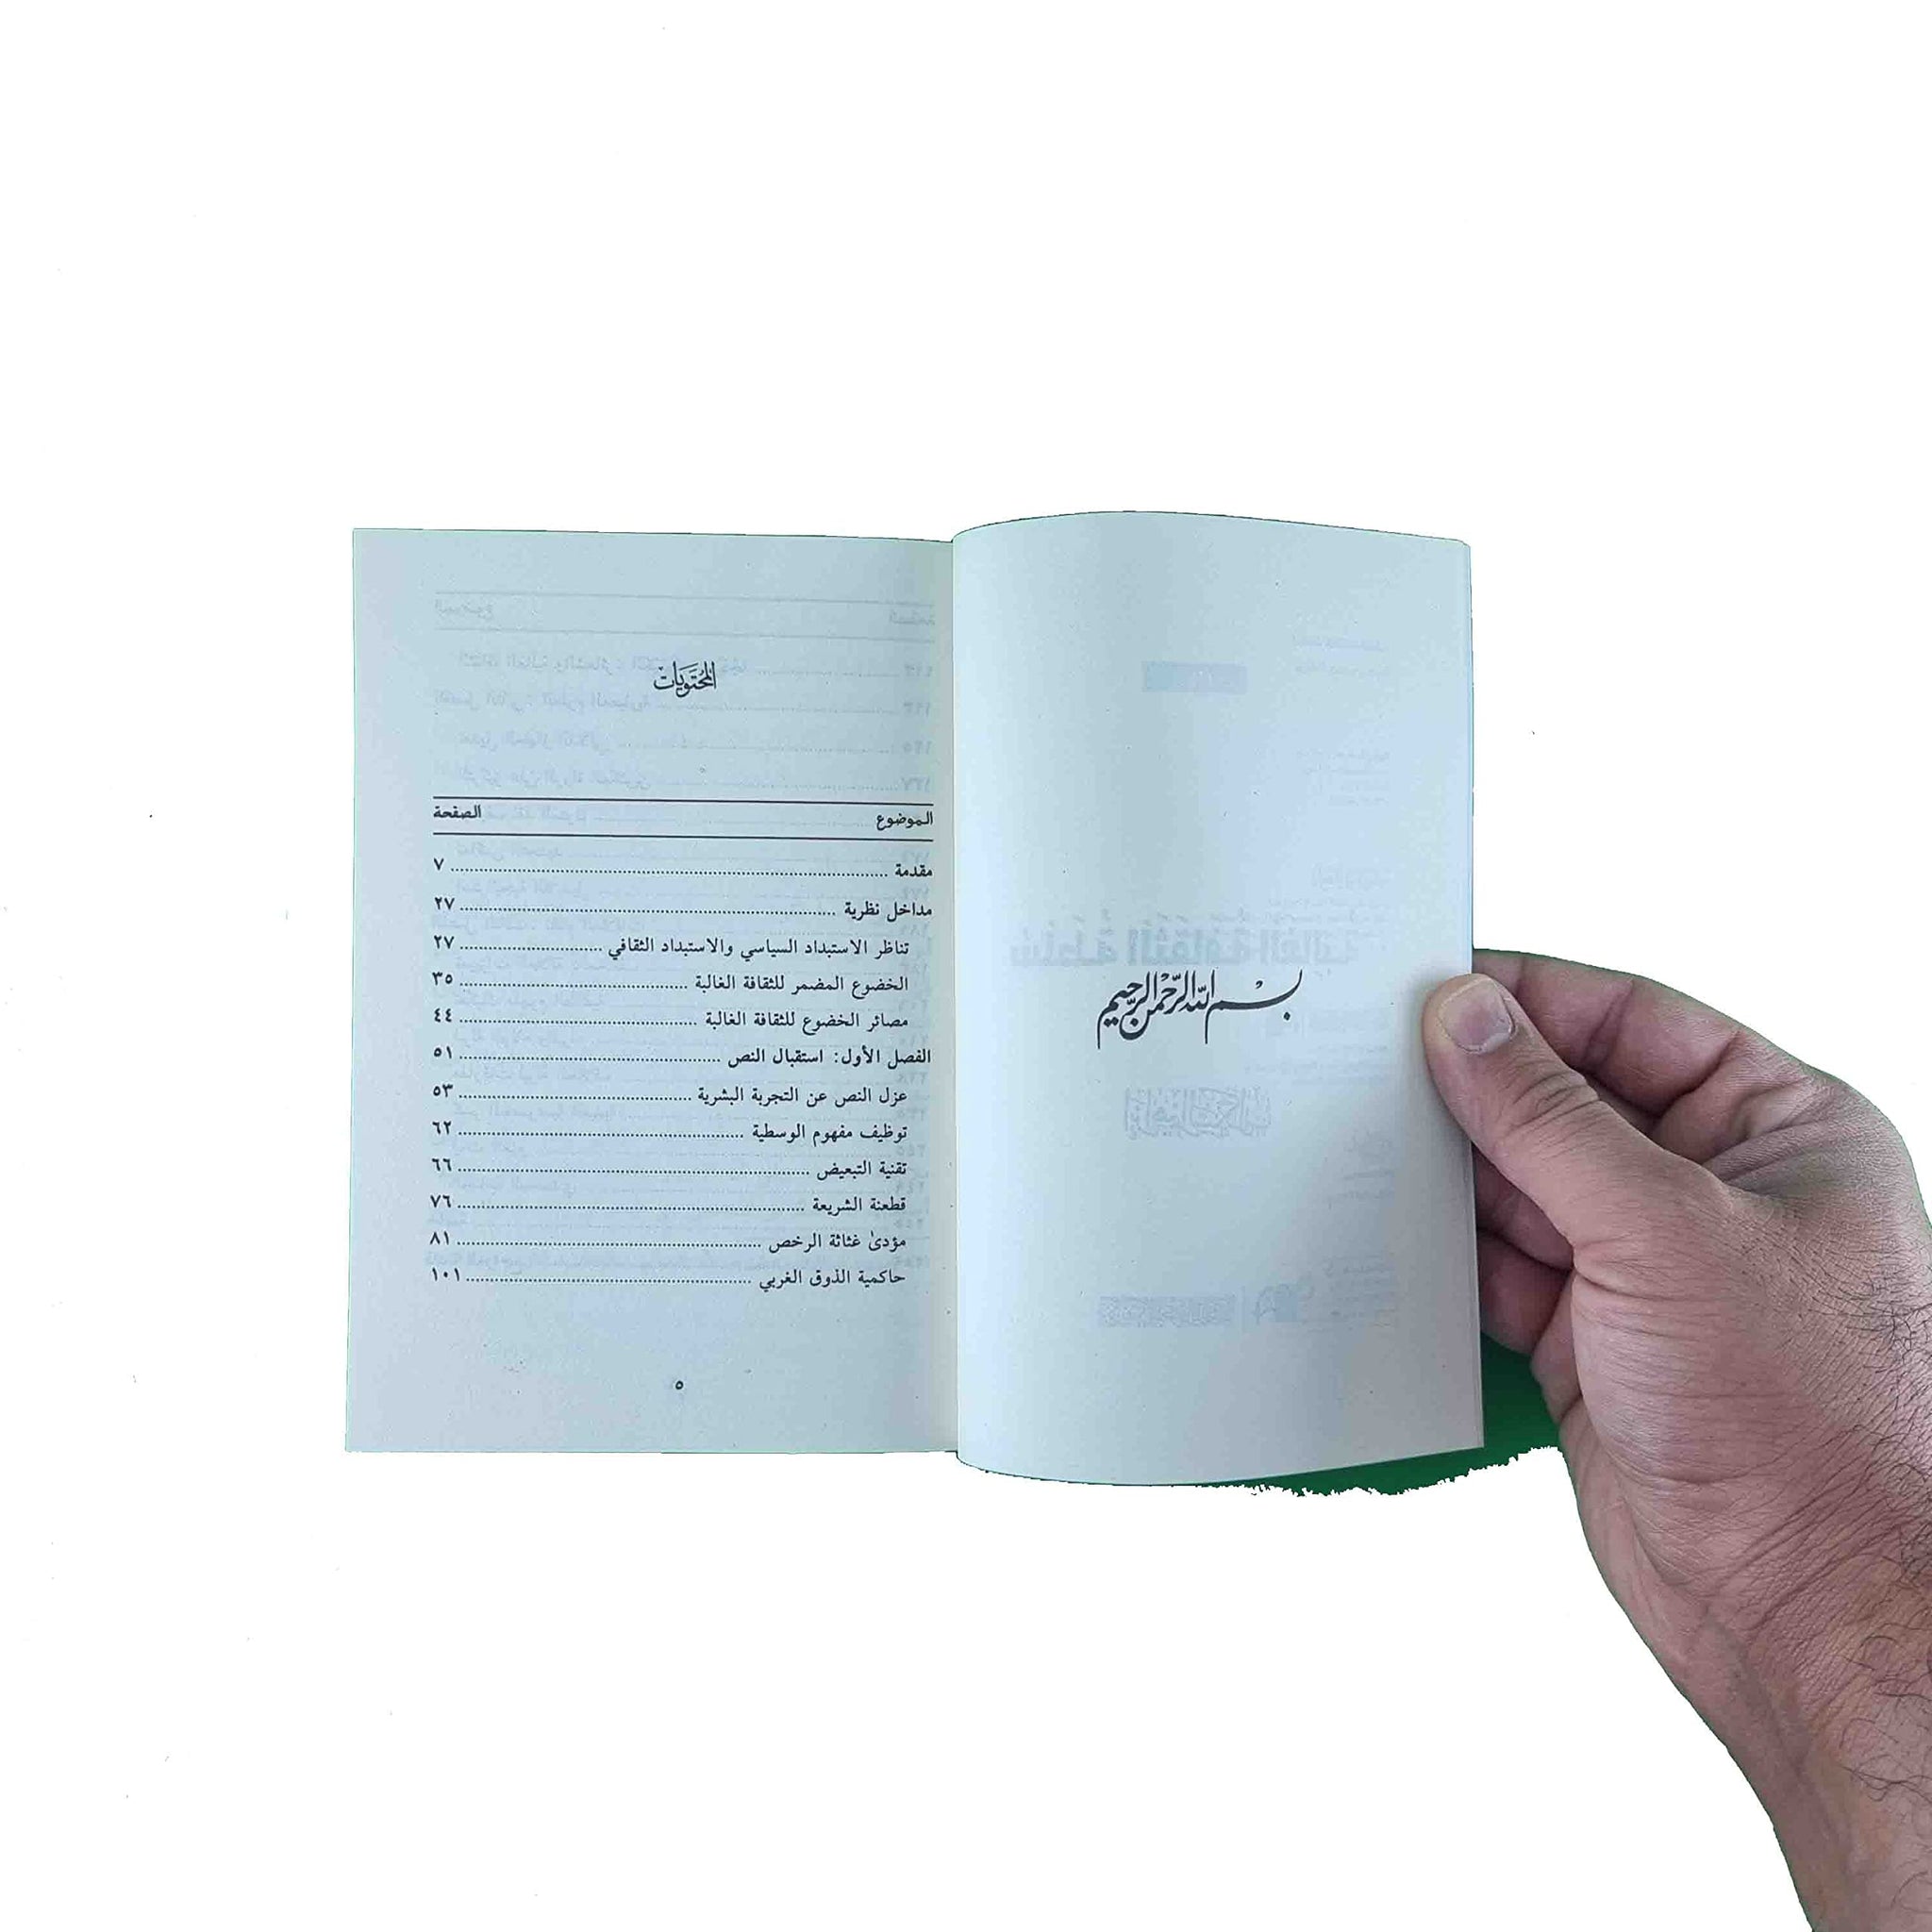 بسم الله الرحمن الرحيم
المحتويات
الموضوع الصفحة
مقدمة ........ ٧
مداخل نظرية ........ ٢٧
تناظر الاستبداد السياسي والاستبداد الثقافي ........ ٢٧
الخضوع المضمر للثقافة الغالبة ........ ٣٥
مصائر الخضوع للثقافة الغالبة ........ ٤٤
الفصل الأول: استقبال النص ........ ٥١
عزل النص عن التجربة البشرية ........ ٥٣
توظيف مفهوم الوسطية ........ ٦٢
تقنية التبعيض ........ ٦٦
قطعنة الشريعة ........ ٧٦
مؤدىٰ غثاثة الرخص ........ ٨١
حاكمية الذوق الغربي ........ ١٠١
٥